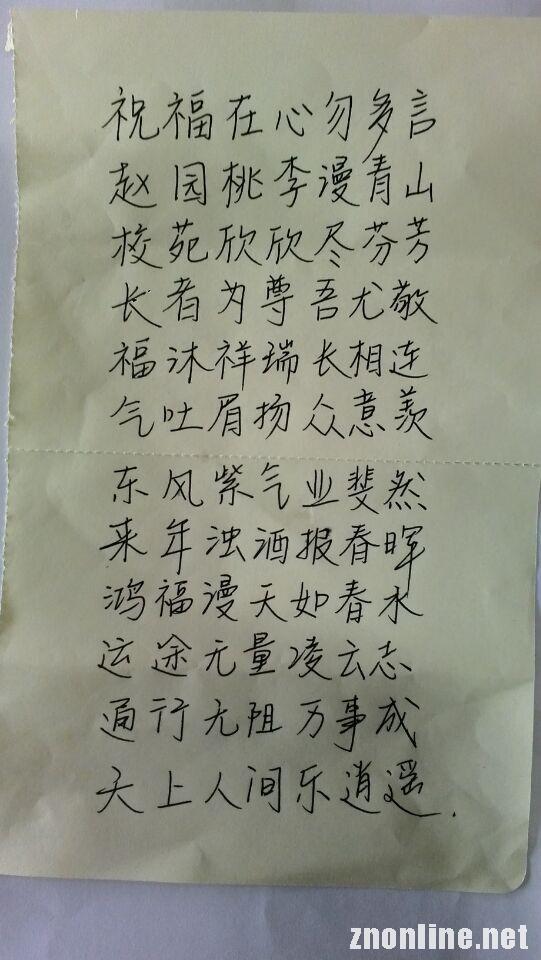 祝福在心勿多言
赵园桃李漫青山
校苑欣欣尽芬芳
长者为尊吾尤敬
福沐祥瑞长相连
气吐眉扬众意羡
东风紫气业斐然
来年浊酒报春晖
鸿福漫天如春水
运途无量凌云志
通行无阻万事成
天上人间乐逍遥.
znonline.net